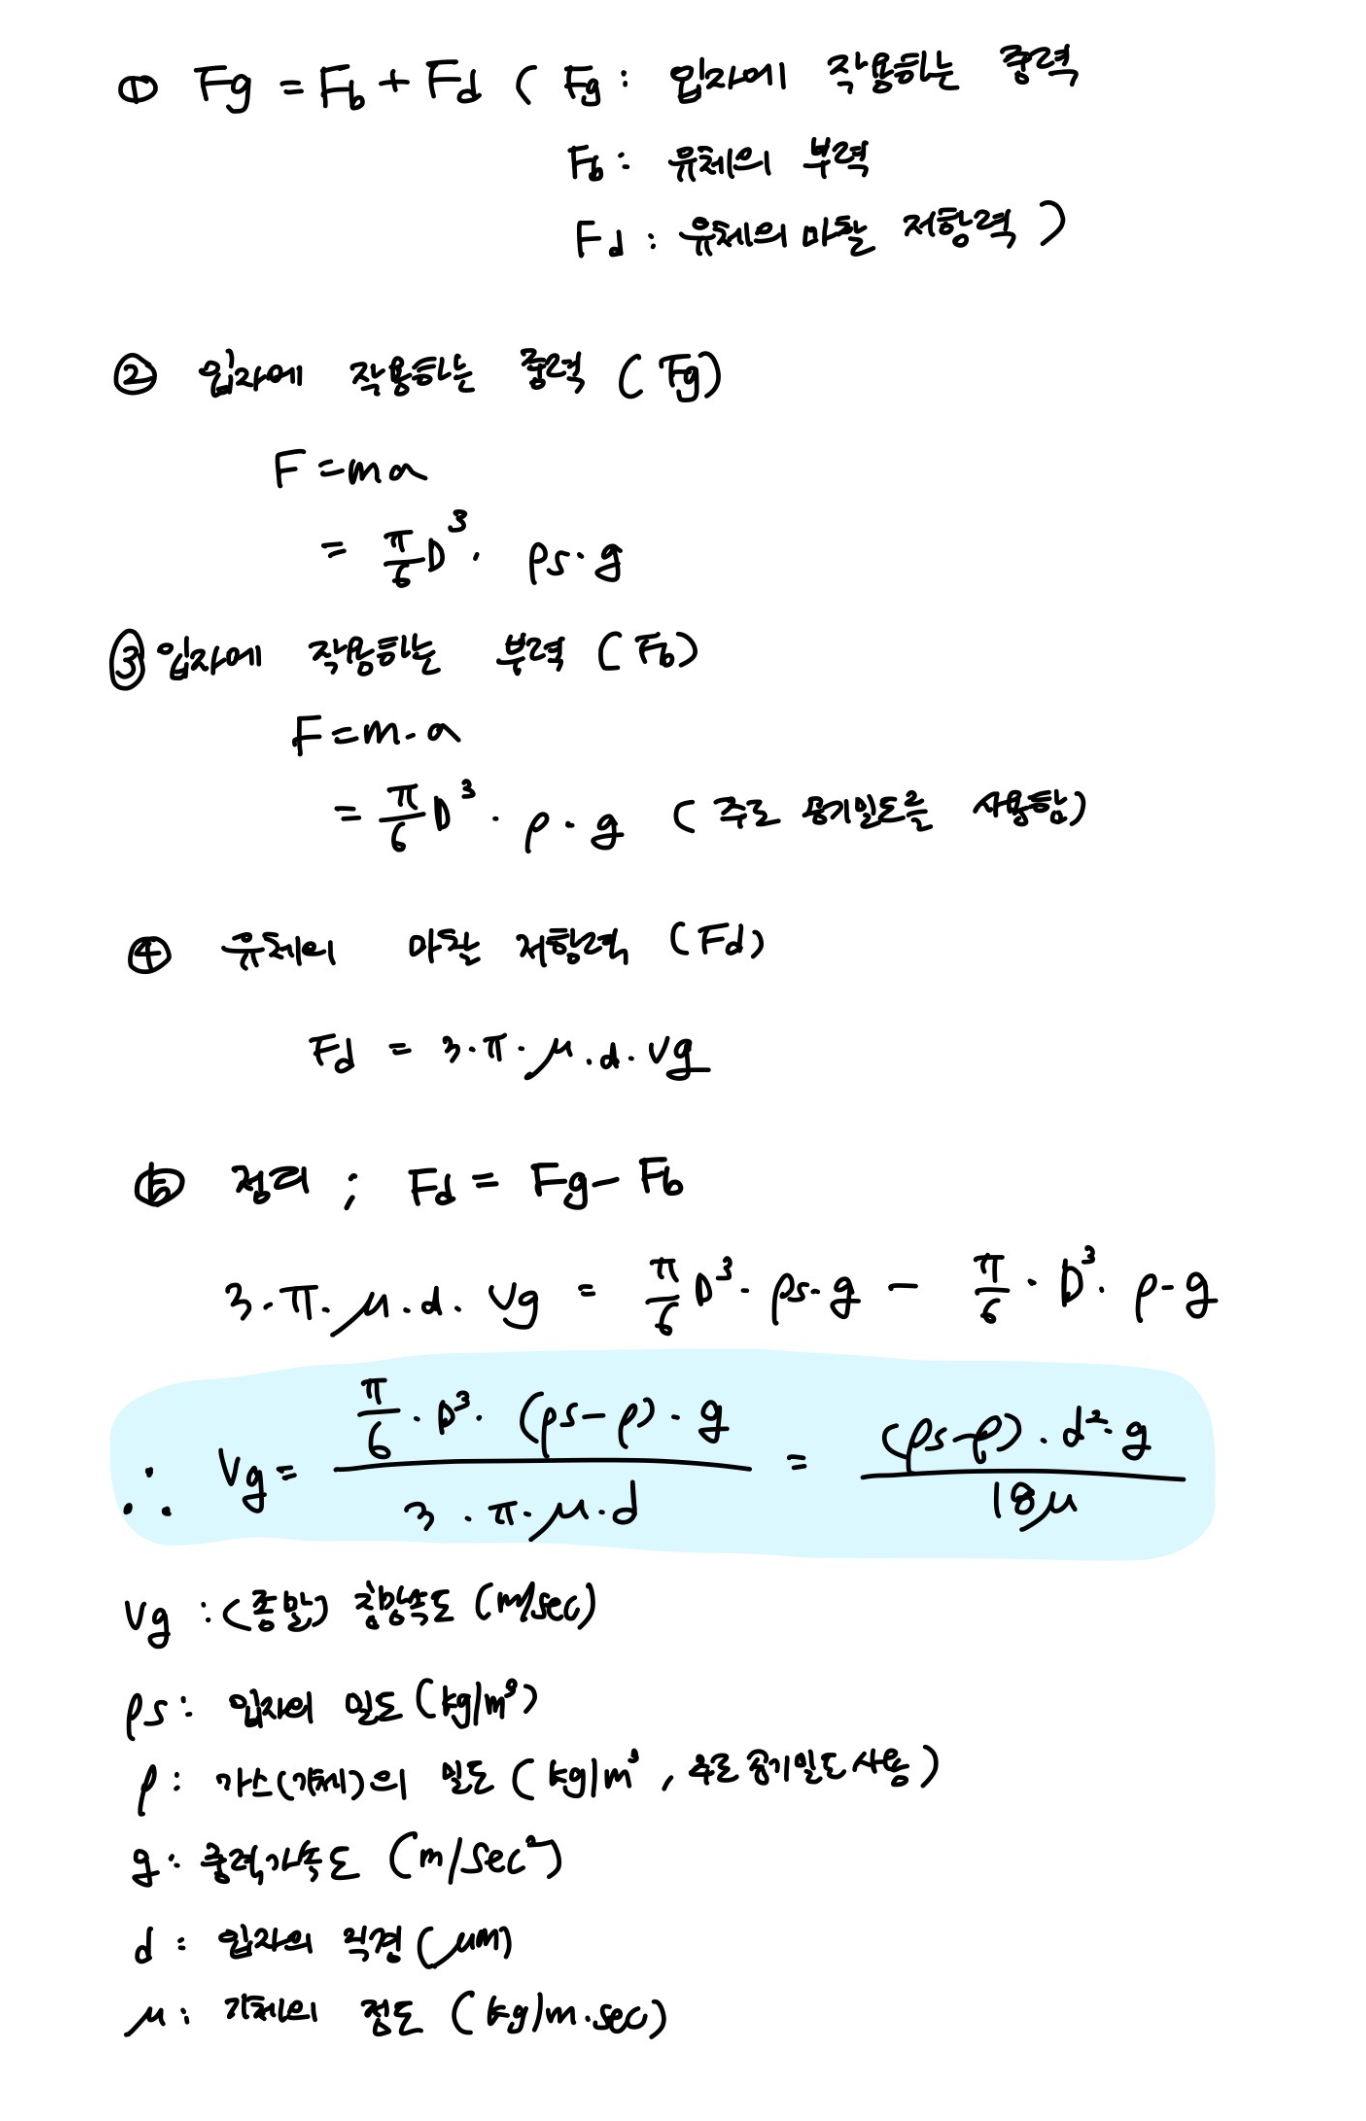 ① Fg = Fb + Fd ( Fg : 입자에 작용하는 중력
Fb : 유체의 부력
Fd : 유체의 마찰 저항력 )
② 입자에 작용하는 중력 ( Fg )
F = ma
= π/6 D³ · ρs · g
③ 입자에 작용하는 부력 ( Fb )
F = m · a
= π/6 D³ · ρ · g ( 주로 공기밀도를 사용함 )
④ 유체의 마찰 저항력 ( Fd )
Fd = 3 · π · μ · d · Vg
⑤ 정리 ; Fd = Fg - Fb
3 · π · μ · d · Vg = π/6 D³ · ρs · g - π/6 · D³ · ρ · g
∴ Vg = π/6 · D³ · (ρs - ρ) · g / 3 · π · μ · d = (ρs - ρ) · d² · g / 18μ
Vg : (종말) 침강속도 (m/sec)
ρs : 입자의 밀도 (kg/m³)
ρ : 가스(기체)의 밀도 ( kg/m³ , 주로 공기밀도 사용 )
g : 중력가속도 (m/sec²)
d : 입자의 직경 (μm)
μ : 기체의 점도 ( kg/m·sec )